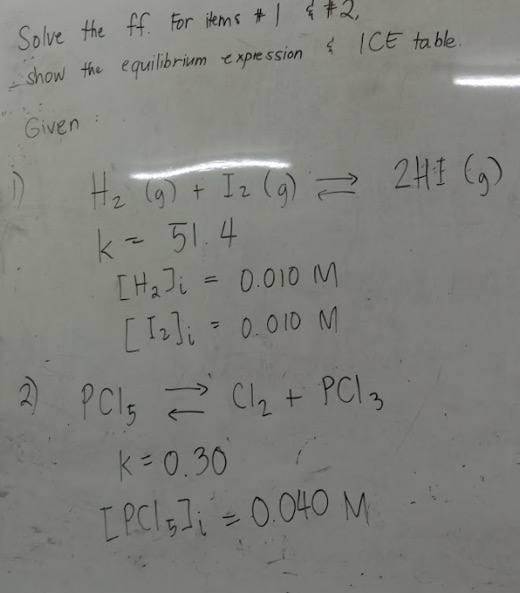 Solve the ff. For items #1 & #2,
show the equilibrium expression & ICE table.
Given :
1) H₂ (g) + I₂ (g) ⇌ 2HI (g)
k = 51.4
[H₂]i = 0.010 M
[I₂]i = 0.010 M
2) PCl₅ ⇌ Cl₂ + PCl₃
k = 0.30
[PCl₅]i = 0.040 M